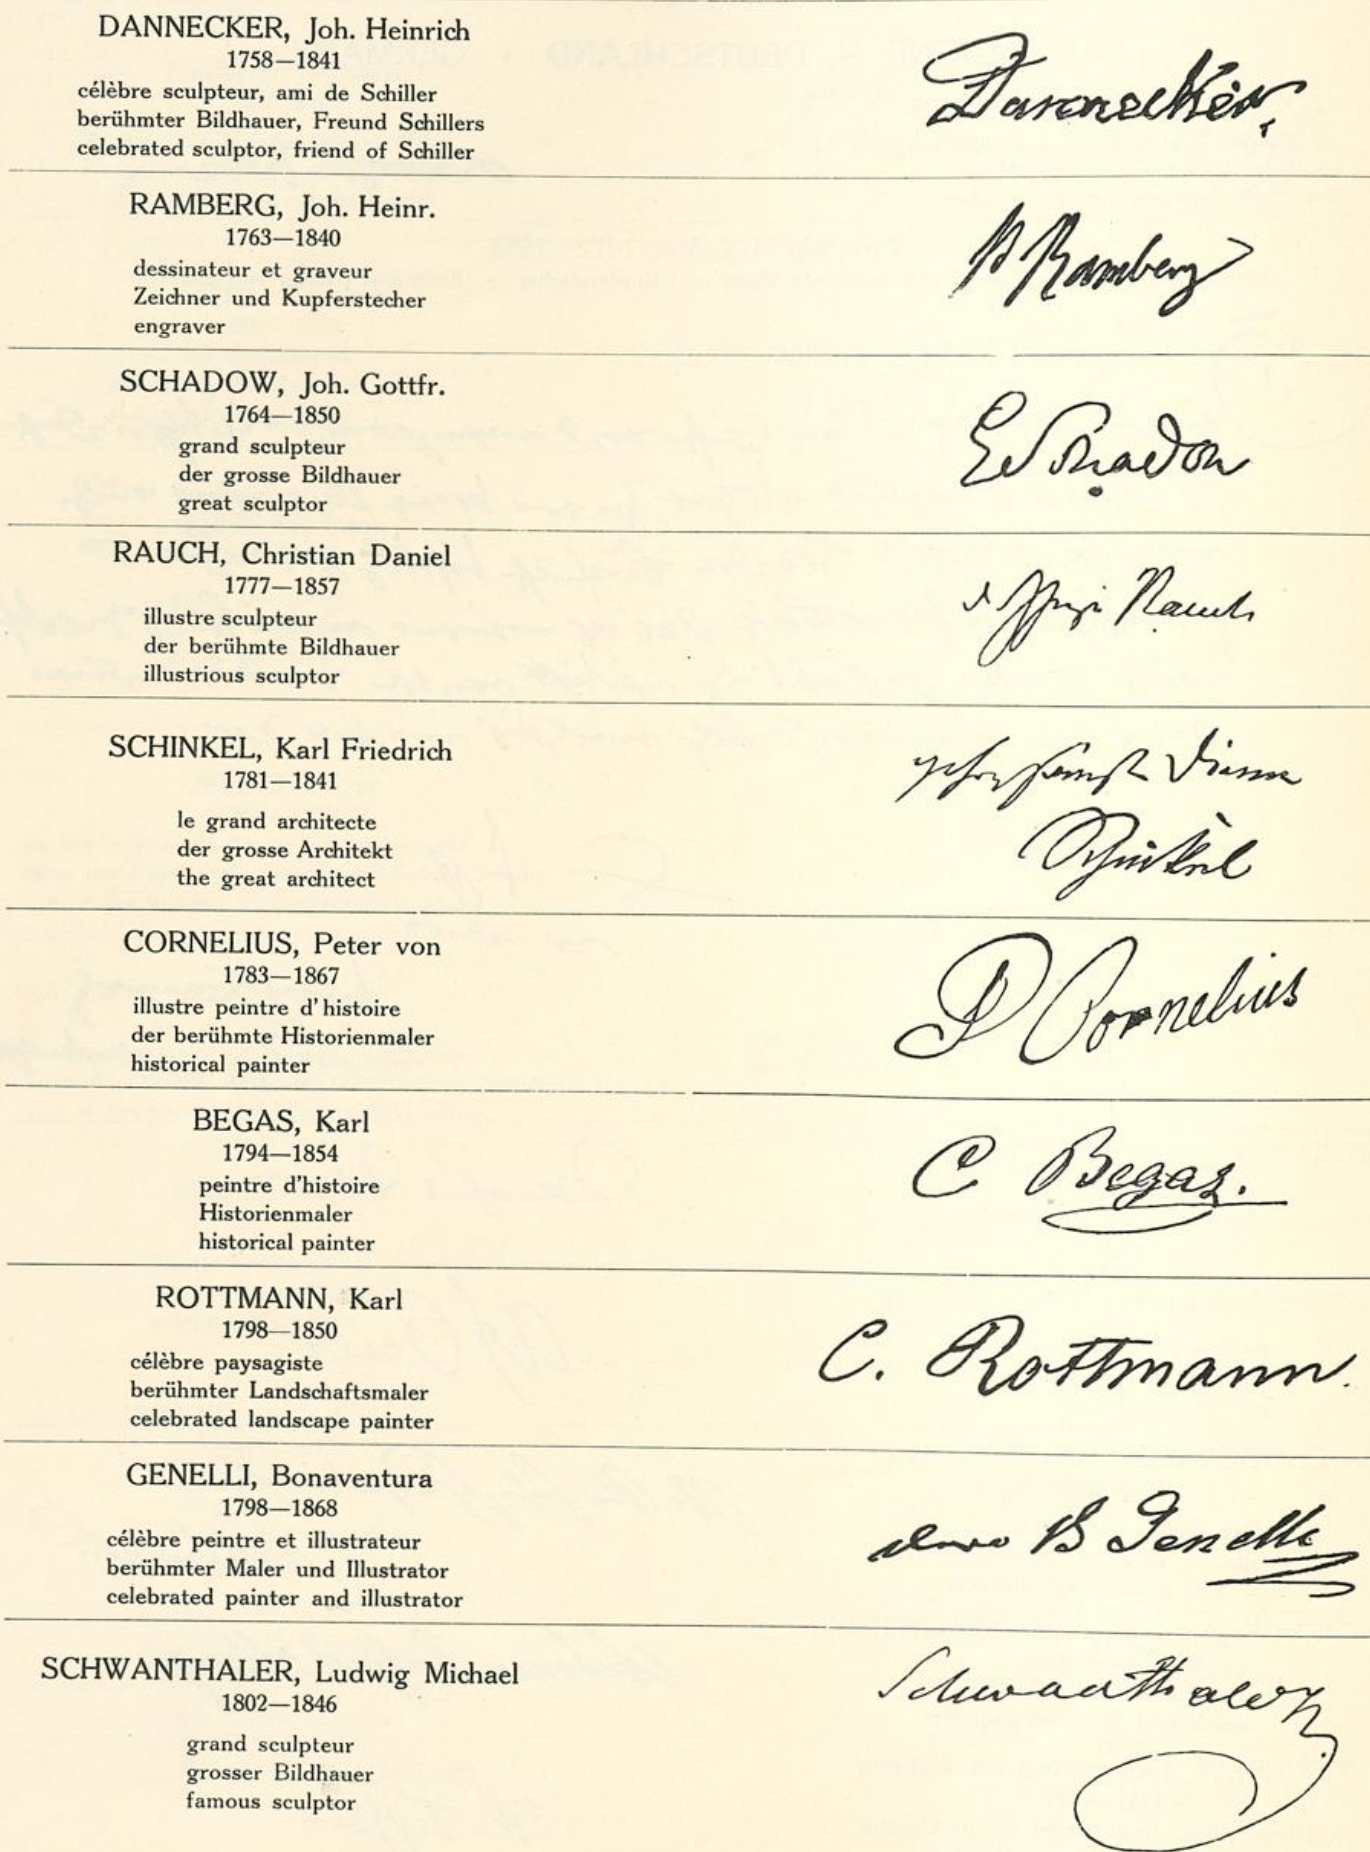 DANNECKER, Joh. Heinrich
1758—1841
célèbre sculpteur, ami de Schiller
berühmter Bildhauer, Freund Schillers
celebrated sculptor, friend of Schiller
Dannecker.
RAMBERG, Joh. Heinr.
1763—1840
dessinateur et graveur
Zeichner und Kupferstecher
engraver
Ramberg
SCHADOW, Joh. Gottfr.
1764—1850
grand sculpteur
der grosse Bildhauer
great sculptor
Schadow
RAUCH, Christian Daniel
1777—1857
illustre sculpteur
der berühmte Bildhauer
illustrious sculptor
Rauch
SCHINKEL, Karl Friedrich
1781—1841
le grand architecte
der grosse Architekt
the great architect
Diener
Schinkel
CORNELIUS, Peter von
1783—1867
illustre peintre d'histoire
der berühmte Historienmaler
historical painter
P Cornelius
BEGAS, Karl
1794—1854
peintre d'histoire
Historienmaler
historical painter
C Begas.
ROTTMANN, Karl
1798—1850
célèbre paysagiste
berühmter Landschaftsmaler
celebrated landscape painter
C. Rottmann.
GENELLI, Bonaventura
1798—1868
célèbre peintre et illustrateur
berühmter Maler und Illustrator
celebrated painter and illustrator
B Genelli
SCHWANTHALER, Ludwig Michael
1802—1846
grand sculpteur
grosser Bildhauer
famous sculptor
Schwanthaler